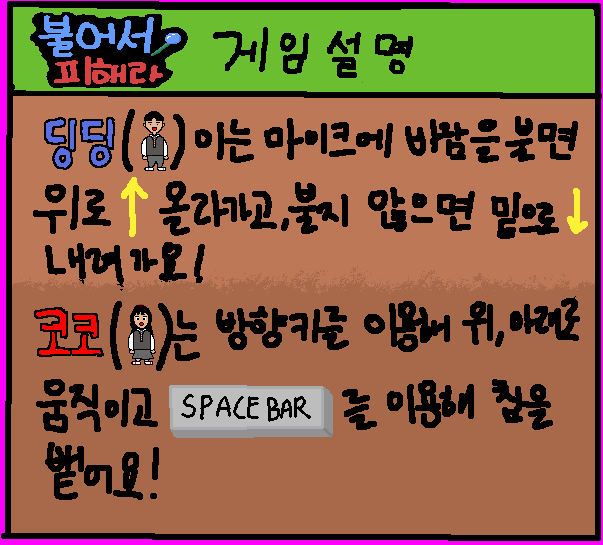 불어서
피해라
게임설명
딩딩( )이는 마이크에 바람을 불면
위로 ↑ 올라가고, 불지 않으면 밑으로 ↓
내려가요!
코코( )는 방향키를 이용해 위, 아래로
움직이고 SPACE BAR 를 이용해 침을
뱉어요!